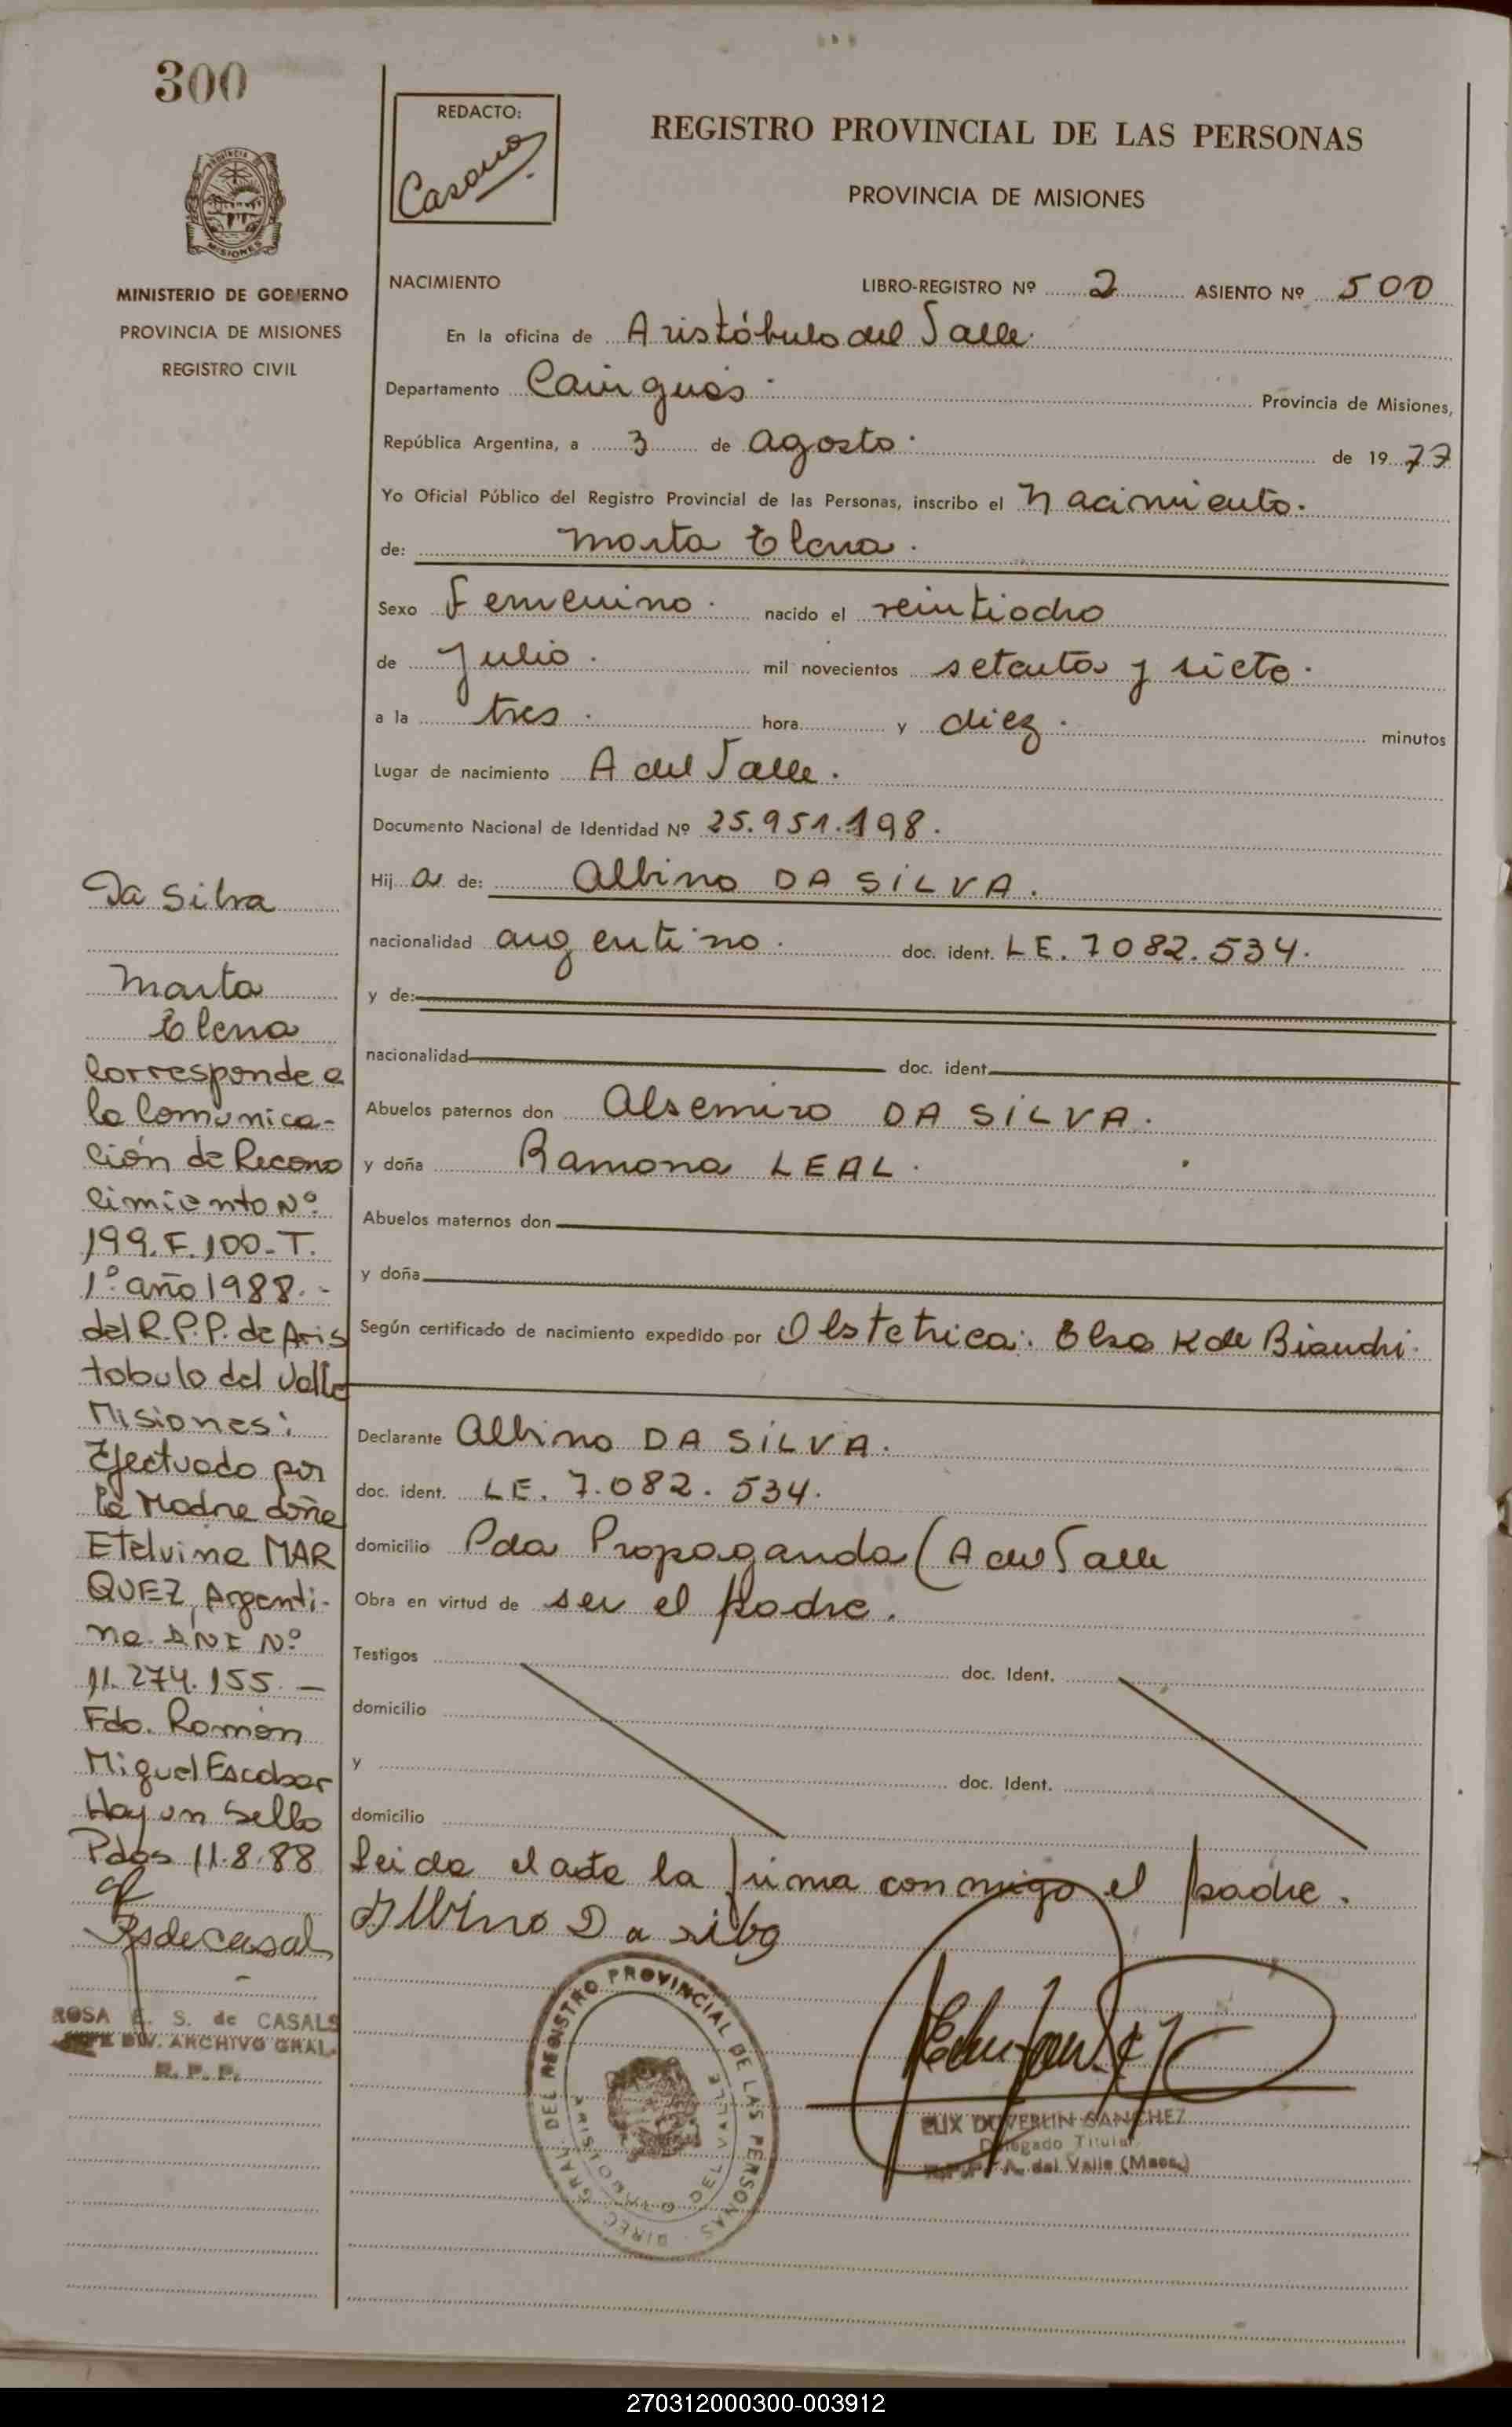 300
REDACTO:
Casano
REGISTRO PROVINCIAL DE LAS PERSONAS
PROVINCIA DE MISIONES
MINISTERIO DE GOBIERNO
PROVINCIA DE MISIONES
REGISTRO CIVIL
NACIMIENTO
LIBRO-REGISTRO Nº 2 ASIENTO Nº 500
En la oficina de Aristóbulo del Valle.
Departamento Cainguás. Provincia de Misiones,
República Argentina, a 3 de agosto. de 1977
Yo Oficial Público del Registro Provincial de las Personas, inscribo el Nacimiento.
de: Marta Elena.
Sexo Femenino. nacido el veintiocho
de Julio. mil novecientos setenta y siete.
a la tres. hora y diez. minutos
Lugar de nacimiento A del Valle.
Documento Nacional de Identidad Nº 25.951.198.
Hij a de: Albino DA SILVA.
nacionalidad argentino. doc. ident. LE. 7082.534.
y de:
nacionalidad doc. ident.
Abuelos paternos don Alsemiro DA SILVA.
y doña Ramona LEAL.
Abuelos maternos don
y doña
Según certificado de nacimiento expedido por Obstetrica: Elsa K de Bianchi.
Declarante Albino DA SILVA.
doc. ident. LE. 7.082.534.
domicilio Pda Propaganda (A del Valle
Obra en virtud de ser el padre.
Testigos doc. Ident.
domicilio
y doc. Ident.
domicilio
Leida el acta la firma conmigo el padre.
Albino Da silba
Da Silva
Marta
Elena
Corresponde a
la Comunica-
ción de Recono
cimiento Nº
199.F.100-T.
1º año 1988.-
del R.P.P. de Aris
tobulo del Valle
Misiones:
Efectuado por
la Madre doña
Etelvina MAR
QUEZ, Argenti-
na. DNI Nº
11.274.155.—
Fdo. Ramón
Miguel Escobar
Hay un Sello
Pdas 11.8.88
ROSA E. S. de CASALS
JEFE DIV. ARCHIVO GRAL.
R. P. P.
DIREC. GRAL. DEL REGISTRO PROVINCIAL DE LAS PERSONAS
ARISTOBULO DEL VALLE
SANCHEZ
Delegado Titular
R.P.P. A. del Valle (Mnes.)
270312000300-003912